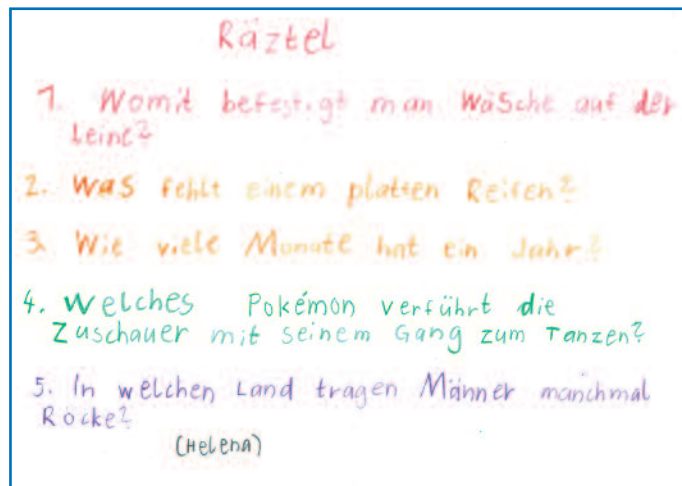 Räztel
1. Womit befestigt man Wäsche auf der
Leine?
2. Was fehlt einem platten Reifen?
3. Wie viele Monate hat ein Jahr?
4. Welches Pokémon verführt die
Zuschauer mit seinem Gang zum Tanzen?
5. In welchen Land tragen Männer manchmal
Röcke?
(Helena)